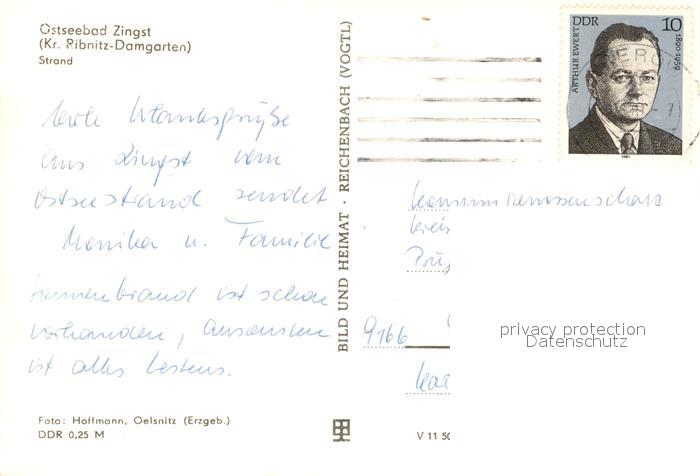 Ostseebad Zingst
(Kr. Ribnitz-Damgarten)
Strand
Urlaubsgrüße
aus Zingst vom
Ostseestrand sendet
Monika u. Familie
Sonnenbrand ist schon
vorhanden, ansonsten
ist alles bestens.
Foto: Hoffmann, Oelsnitz (Erzgeb.)
DDR 0,25 M
BILD UND HEIMAT · REICHENBACH (VOGTL)
V 11 50
DDR 10
ARTHUR EWERT
1890-1959
1981
Konsumgenossenschaft
Kreis
9166
privacy protection
Datenschutz